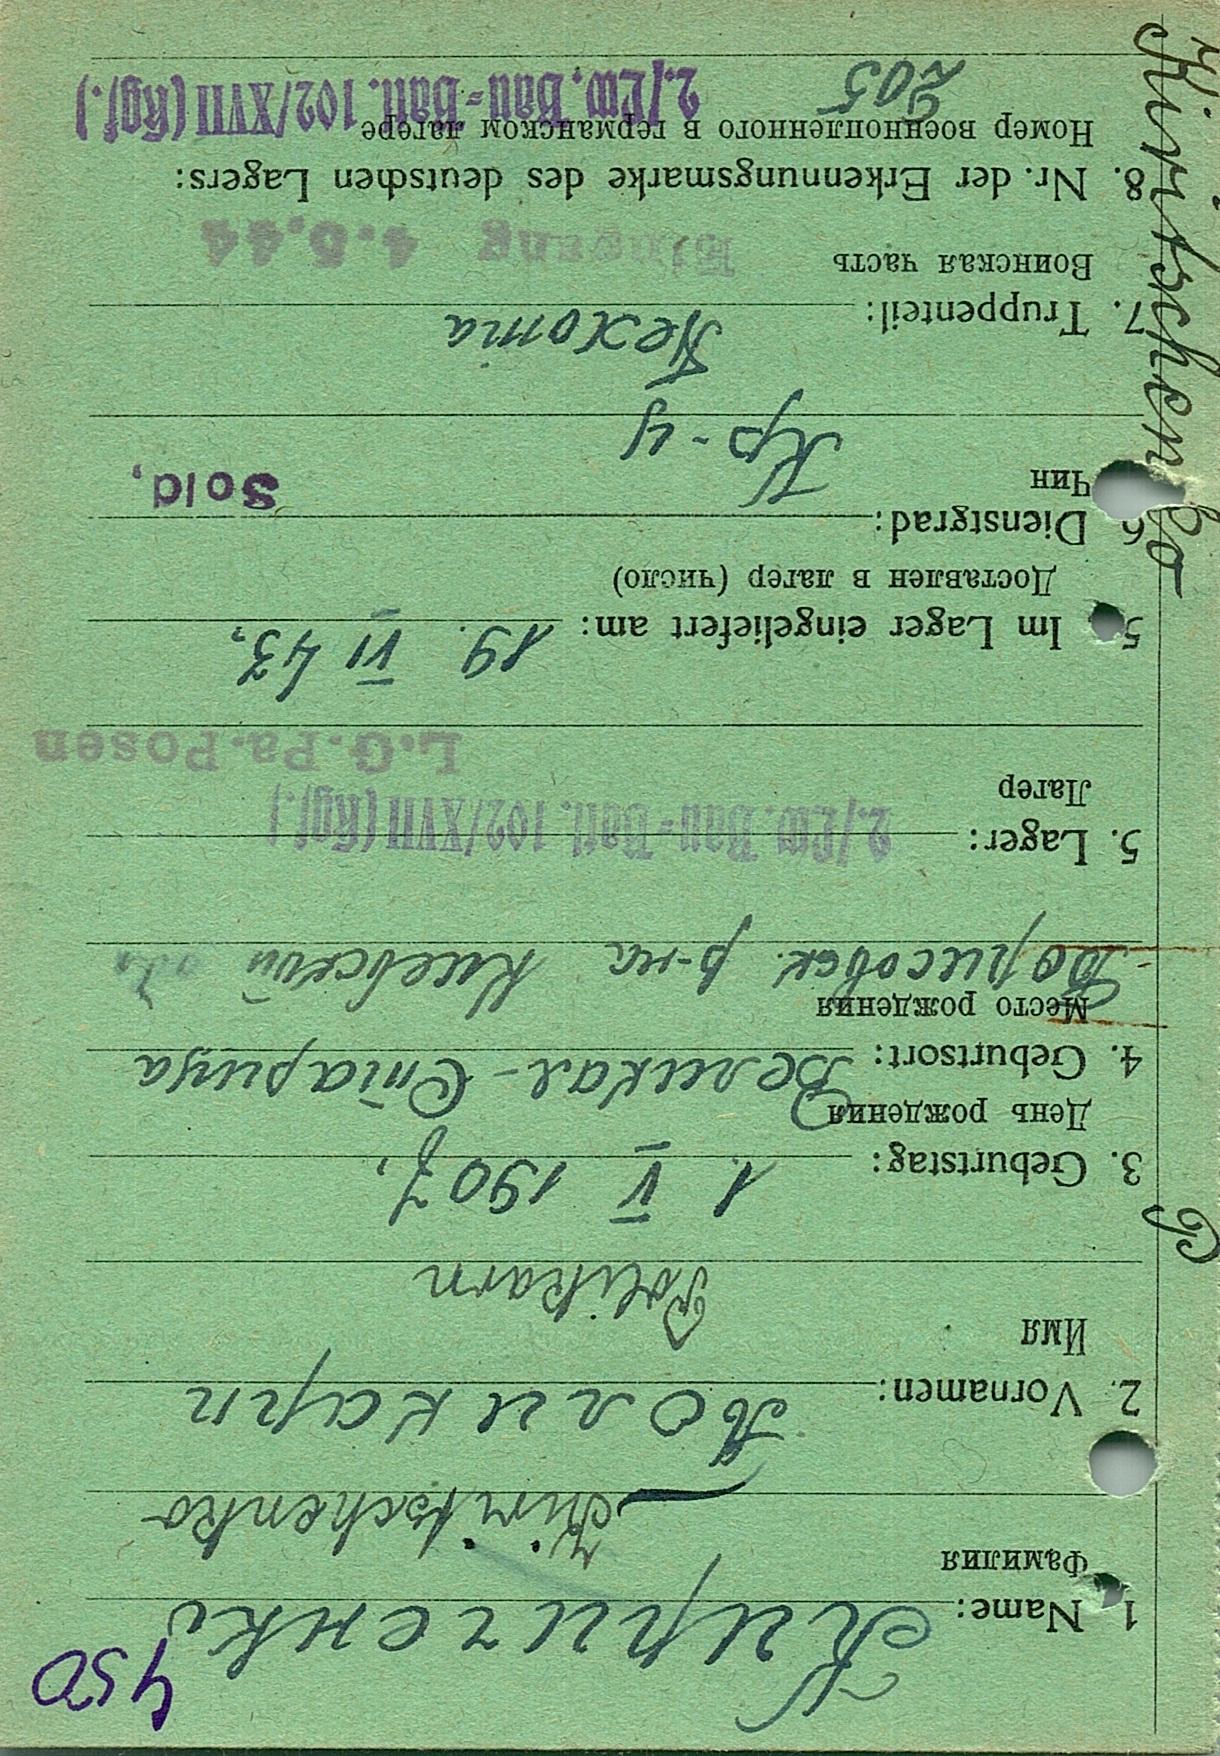 450
1. Name: Кириченко
Фамилия
Kiritschenko
2. Vornamen: Поликарп
Имя
Polikarn
3. Geburtstag: 1. V 1907.
День рождения
4. Geburtsort: Великая-Старица
Место рождения
Борисовск. р-на Киевской обл
5. Lager: 2./Lw. Bau-Batl. 102/XVII (Kgf.)
Лагер
L.G.Pa.Posen
5. Im Lager eingeliefert am: 19. VI 43,
Доставлен в лагер (число)
6. Dienstgrad: Sold,
Чин
Кр-ц
7. Truppenteil: Пехота
Воинская часть
Eingang 4.5.44
8. Nr. der Erkennungsmarke des deutschen Lagers:
Номер военнопленного в германском лагере
205
2./Lw. Bau-Batl. 102/XVII (Kgf.)
P
Kiritschenko